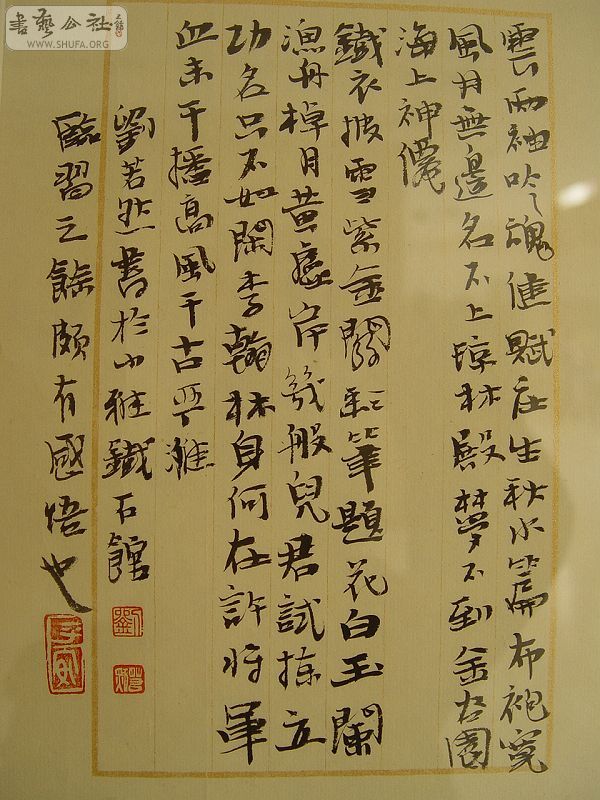 書藝公社
WWW.SHUFA.ORG
雲兩袖吟魂健賦莊生秋水篇布袍寬
風月無邊名不上瓊林殿夢不到金谷園
海上神僊
鐵衣披雪紫金關彩筆題花白玉闌
漁舟棹月黃蘆岸幾般兒君試揀立
功名只不如閑李翰林身何在許將軍
血未干播高風千古嚴灘
劉若然書於小雅鐵石館
臨習之餘頗有國悟也